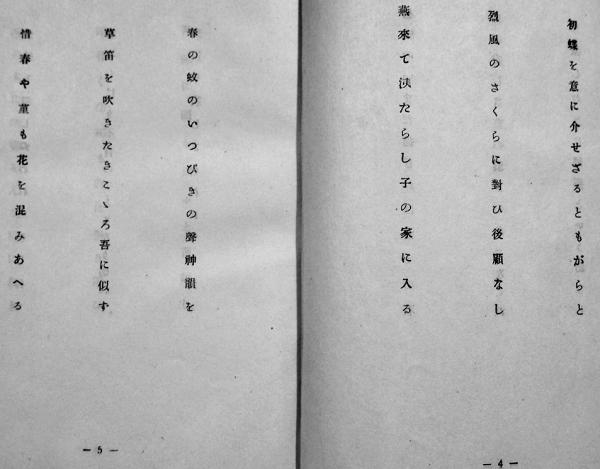 初蝶を意に介せざるともがらと
烈風のさくらに對ひ後顧なし
燕來て泱たらし子の家に入る
— 4 —
春の蚊のいつぴきの聲神韻を
草笛を吹きたきこゝろ吾に似ず
惜春や菫も花を混みあへる
— 5 —